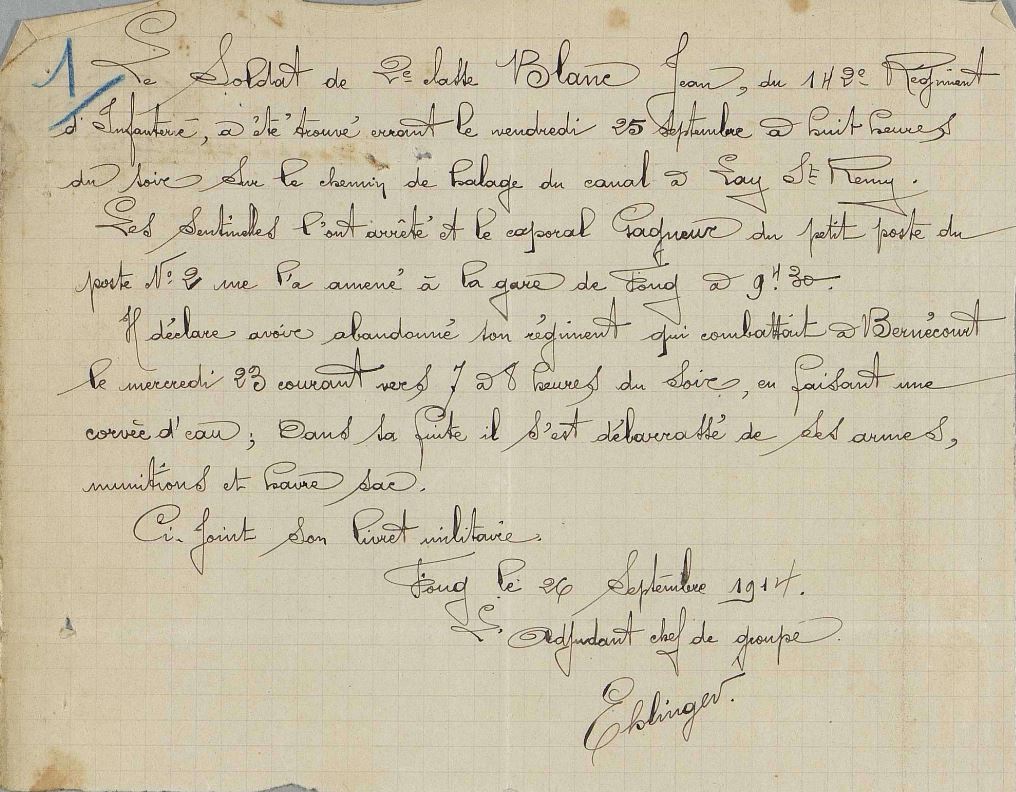 1
Le Soldat de 2e classe Blanc Jean, du 142e Régiment
d'Infanterie, a été trouvé errant le vendredi 25 Septembre à huit heures
du soir sur le chemin de halage du canal à Lay St Remy.
Les Sentinelles l'ont arrêté et le caporal Gagneur du petit poste du
poste No 2 me l'a amené à la gare de Foug à 9h 30.
Il déclare avoir abandonné son régiment qui combattait à Bernécourt
le mercredi 23 courant vers 7 à 8 heures du Soir, en faisant une
corvée d'eau; Dans sa fuite il s'est débarrassé de ses armes,
munitions et havre sac.
Ci-Joint son livret militaire.
Foug le 26 Septembre 1914.
L'Adjudant chef de groupe